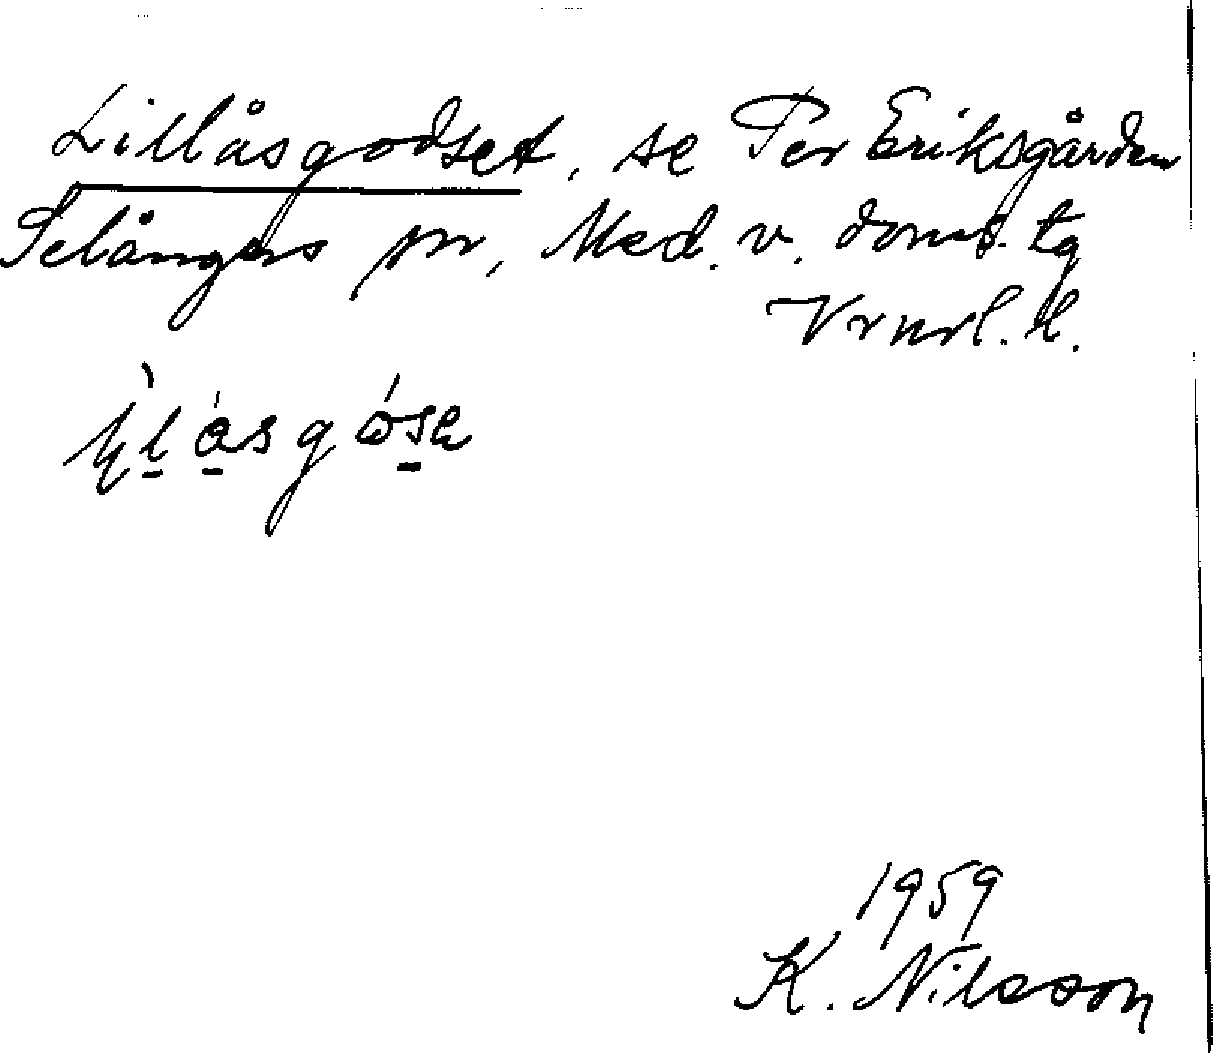 Lillåsgodset, se Per Eriksgården
Selångers sn, Med. v. doms. tg
Vrnrl. l.
1959
K. Nilsson